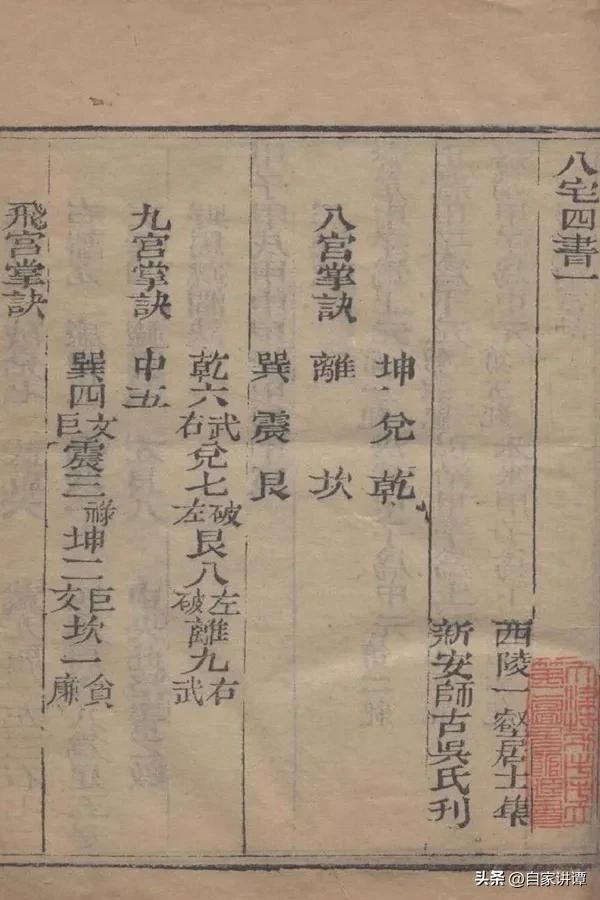 八宅四書一
西陵一壑居士集
新安師古吳氏刊
坤兌乾
八宮掌訣 離坎
巽震艮
乾六武右兌七破左艮八左破離九右武
九宮掌訣 中五
巽四文巨震三祿坤二巨文坎一貪廉
飛宮掌訣
头条 @自家讲谭